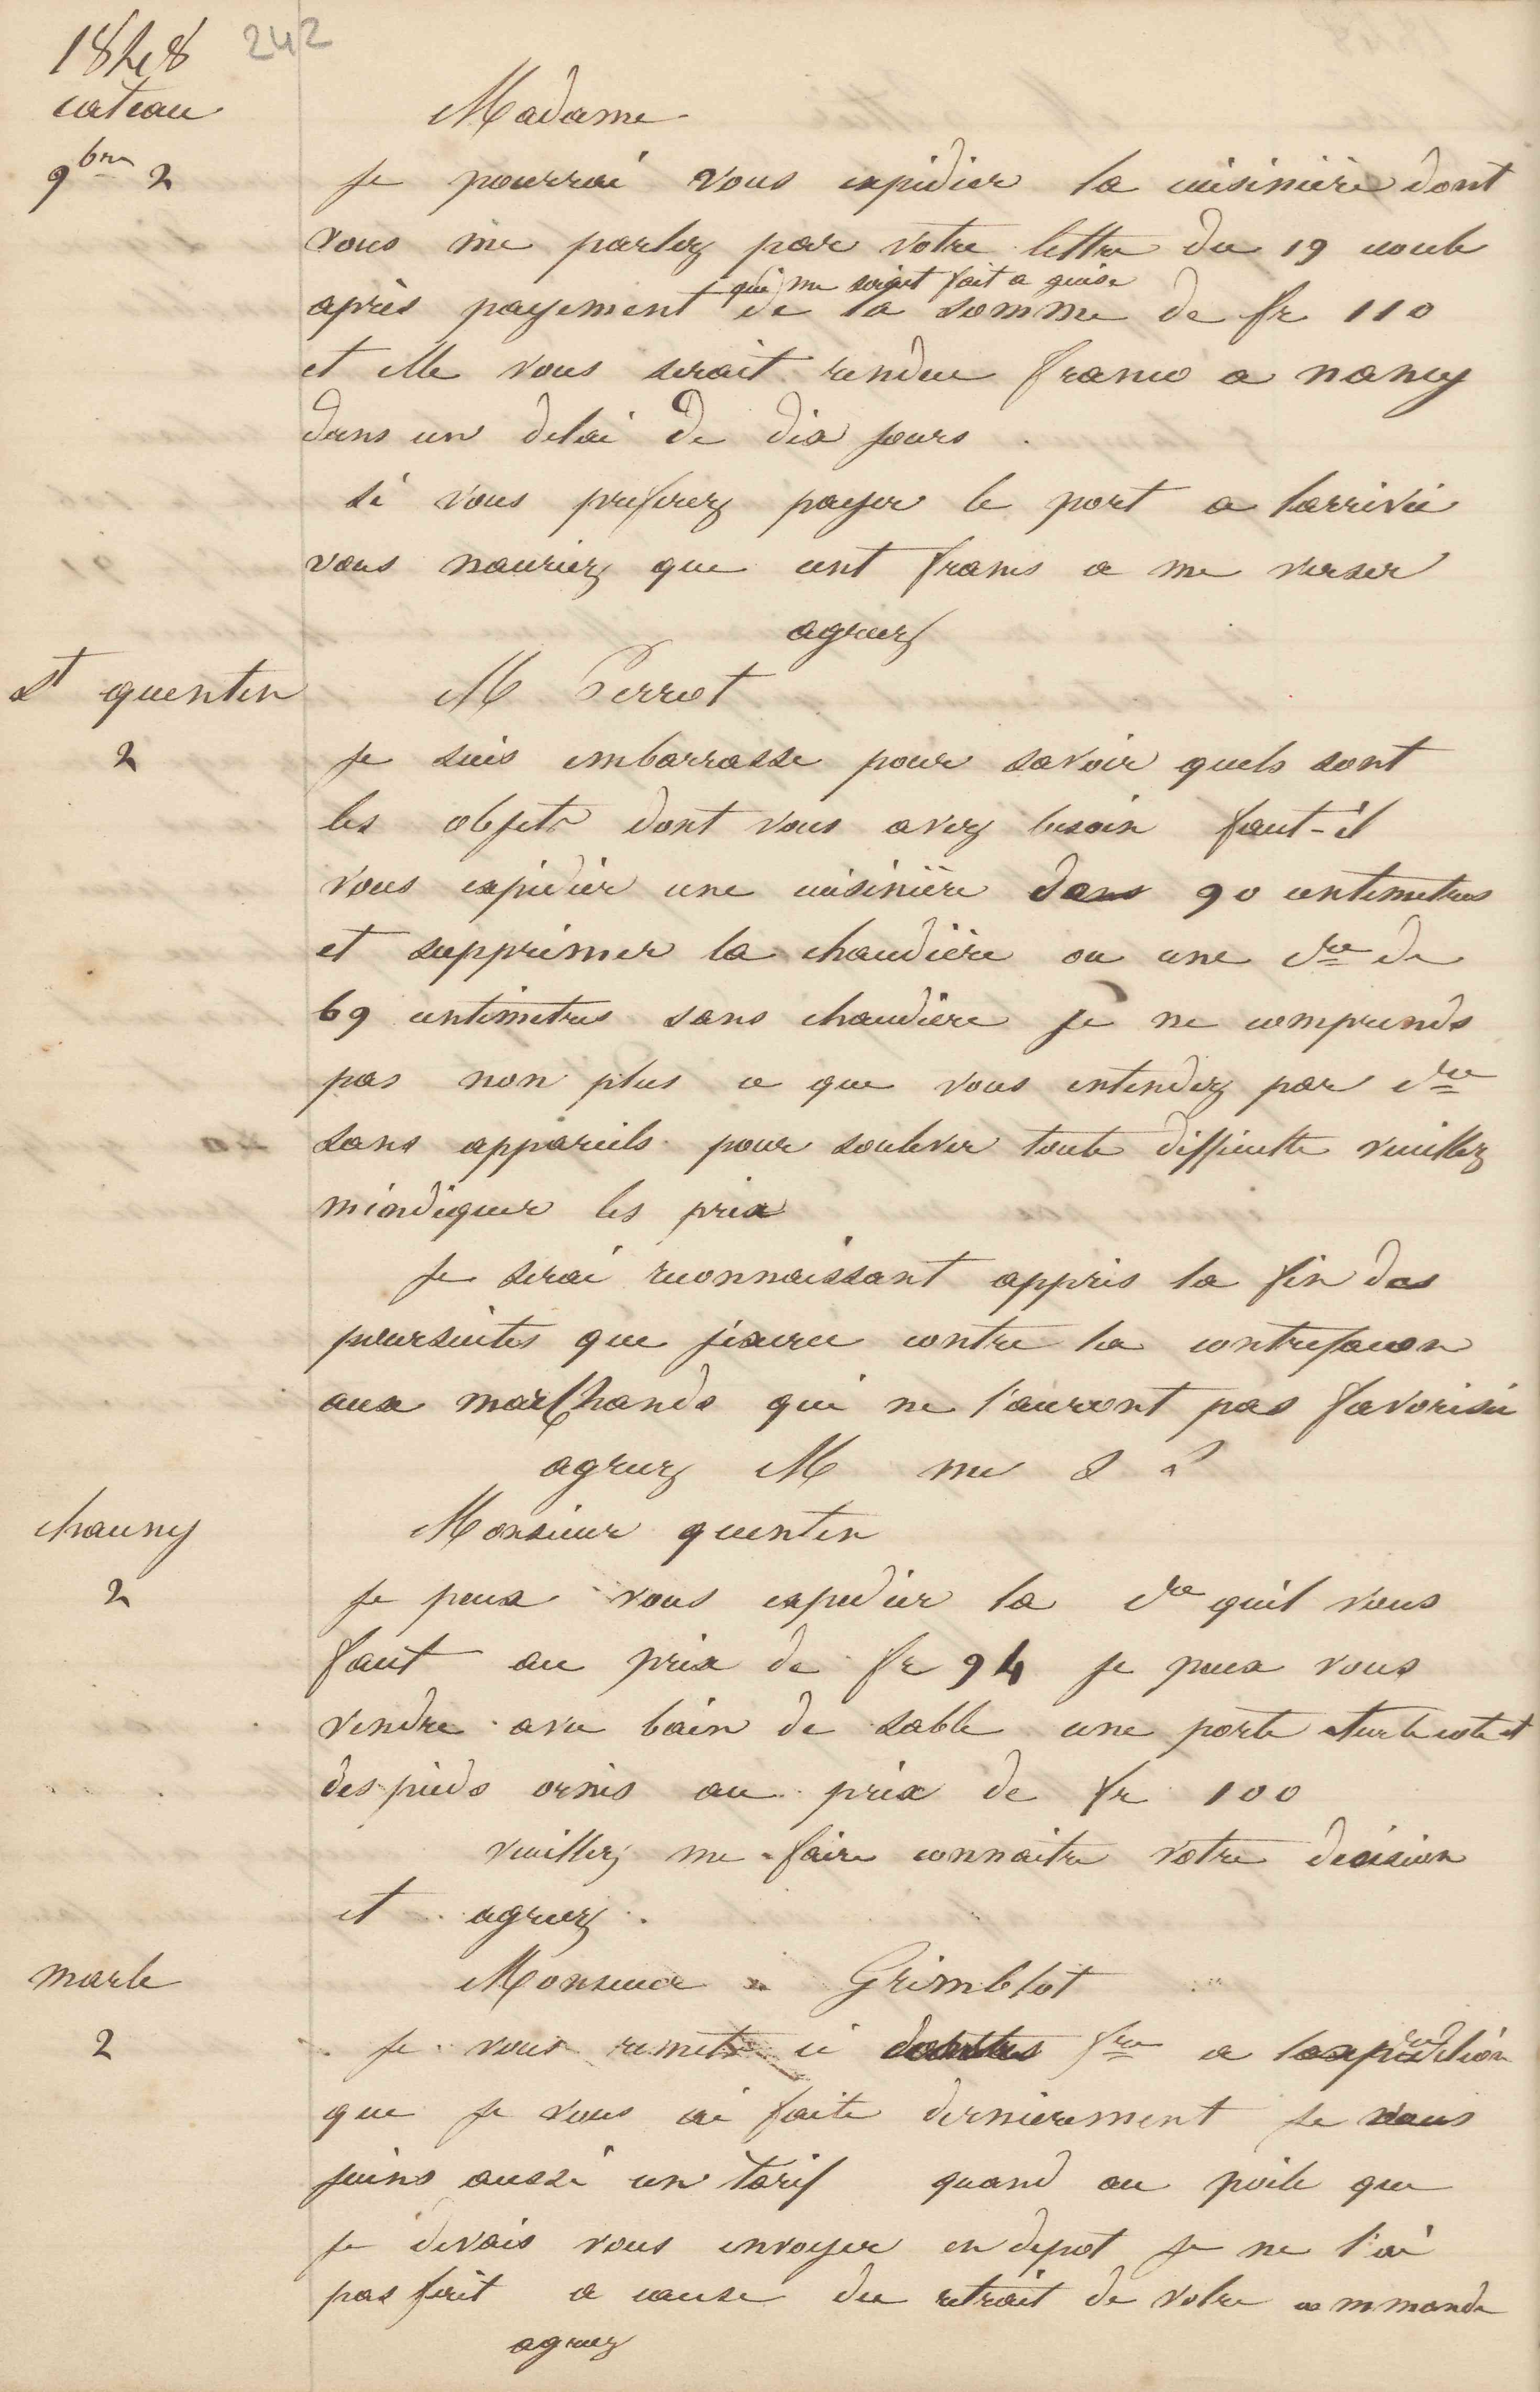 1848 242
cateau
Madame
9bre 2
je pourrai vous expidier la cuisinière dont
vous me parlez par votre lettre du 19 
qui me soient fait a guise
après payement de la somme de fr 110
et elle vous serait rendue franco a nancy
dans un delai de dix jours
si vous preferez payer le port a larrivée
vous nauriez que cent francs a me verser
agreez
st quentin
M Perrot
2
je suis embarrasse pour savoir quels sont
les objets dont vous avez besoin faut-il
vous expidier une cuisinière dans 90 centimetres
et supprimer la chaudière ou une dre de
69 centimetres sans chaudiere je ne comprends
pas non plus ce que vous entendez par dre
sans appareils pour soulever toute difficulte veuillez
mindiquer les prix
je serai reconnaissant appris la fin des
poursuites que jexerce contre la contrefacon
aux marchands qui ne l'auront pas favorisée
agreez M me S
chauny
Monsieur quentin
2
je peux vous expedier la dre quil vous
faut au prix de fr 94 je peux vous
vendre avec bain de sable une porte sur le coté et
des pieds ornés au prix de fr 100
veuillez me faire connaitre votre decision
et agreez
marle
Monsieur Grimblot
2
je vous remets ci fre a lexpedition
que je vous ai faite dernierement je vous
joins aussi un tarif quand au poile que
je devais vous envoyer en depot je ne l'ai
pas fait a cause du retrait de votre commande
agreez